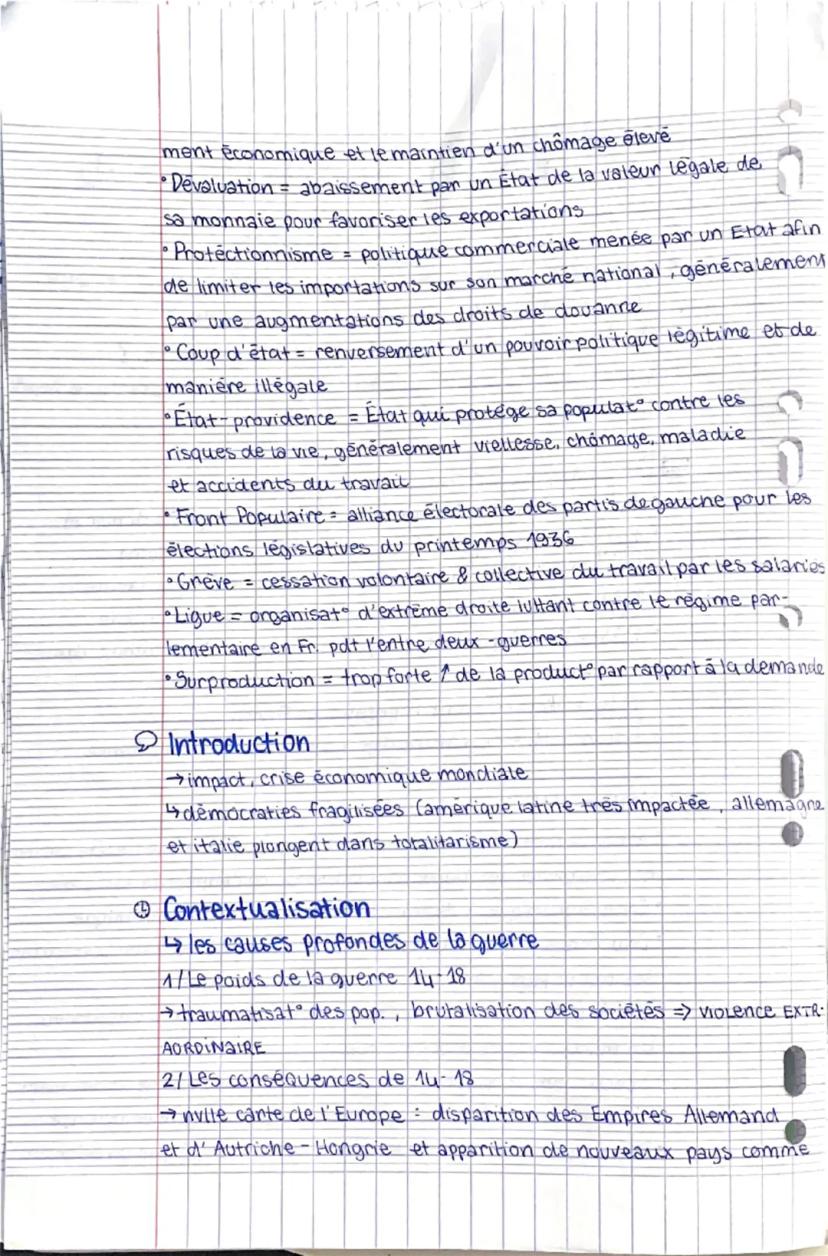 ment économique et le maintien d'un chômage élevé
• Dévaluation = abaissement par un État de la valeur légale de
sa monnaie pour favoriser les exportations
• Protéctionnisme = politique commerciale menée par un Etat afin
de limiter les importations sur son marché national, généralement
par une augmentations des droits de douanne
• Coup d'état = renversement d'un pouvoir politique légitime et de
manière illégale
• État-providence = État qui protége sa populat° contre les
risques de la vie, généralement viellesse, chômage, maladie
et accidents du travail
• Front Populaire = alliance électorale des partis de gauche pour les
élections législatives du printemps 1936
• Grève = cessation volontaire & collective du travail par les salariés
• Ligue = organisat° d'extrême droite luttant contre le régime par-
lementaire en Fr. pdt l'entre deux-guerres
• Surproduction = trop forte ↑ de la product° par rapport à la demande
Introduction
→ impact, crise économique mondiale
↳ démocraties fragilisées (amérique latine très impactée, allemagne
et italie plongent dans totalitarisme)
Contextualisation
↳ les causes profondes de la guerre
1/ Le poids de la guerre 14-18
→ traumatisat° des pop., brutalisation des sociétés => VIOLENCE EXTR-
AORDINAIRE
2/ Les conséquences de 14-18
→ nvlle carte de l'Europe : disparition des Empires Allemand
et d'Autriche-Hongrie et apparition de nouveaux pays comme